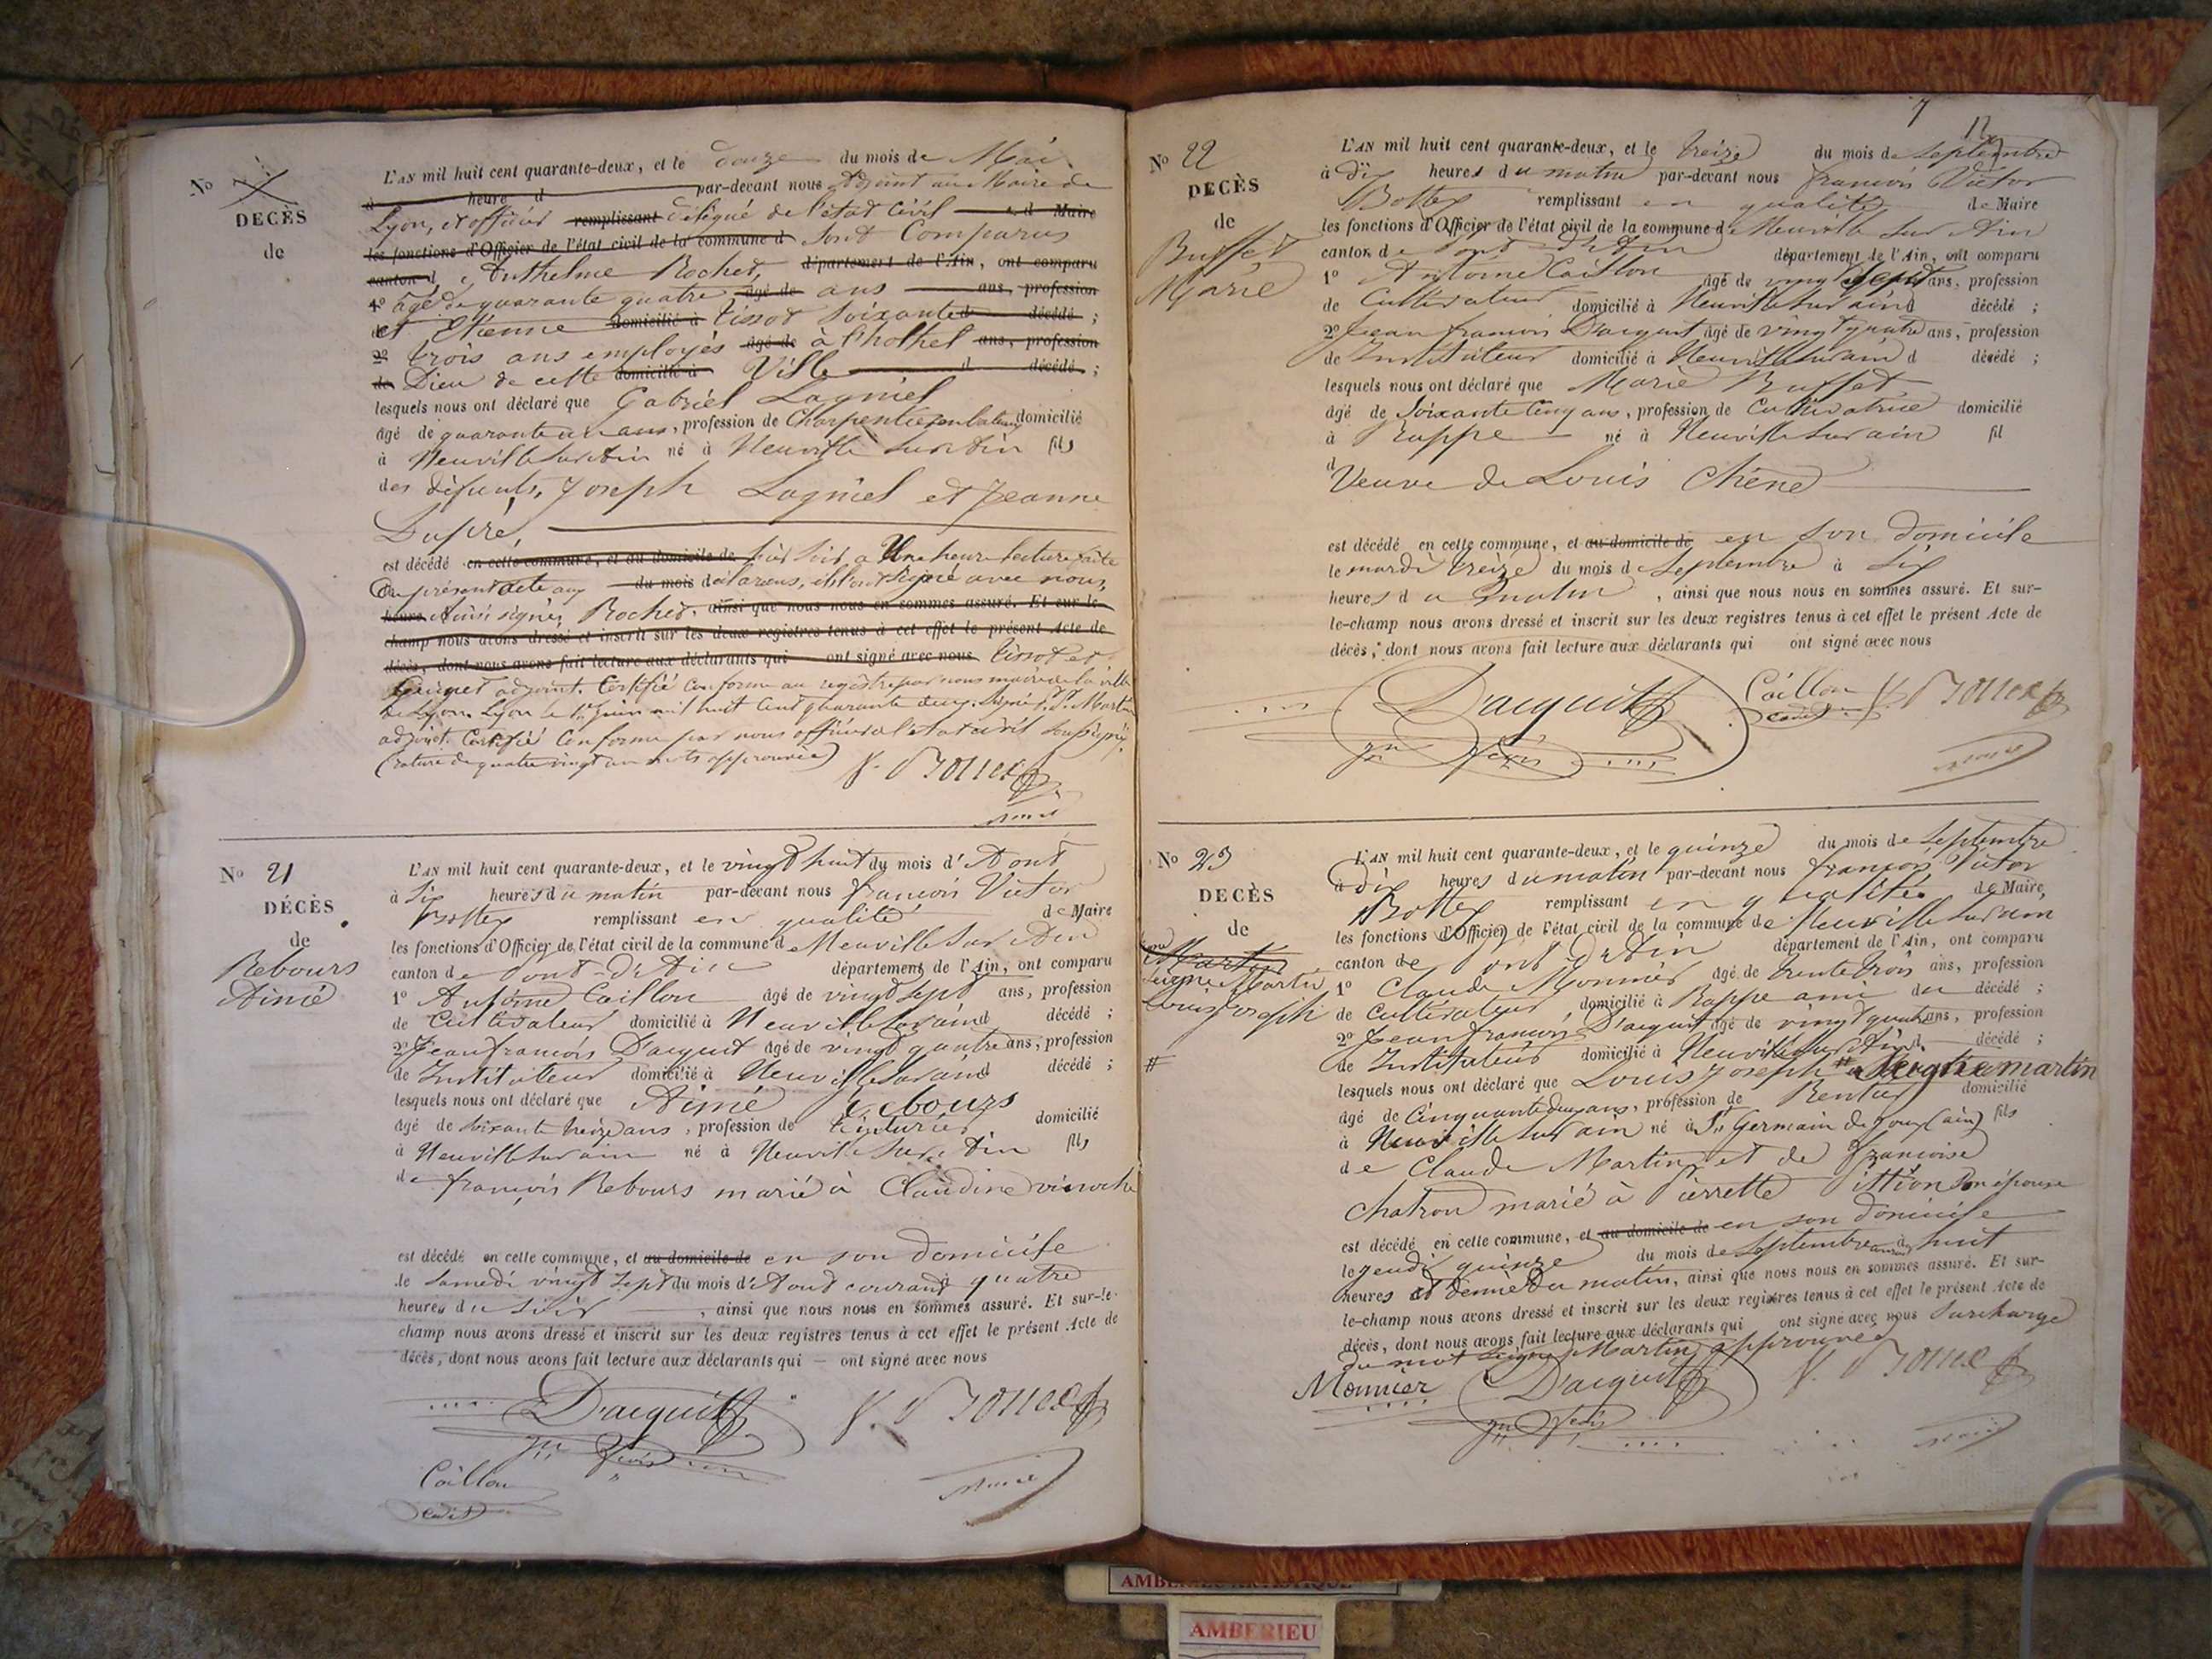 No
DECÈS
de
L'AN mil huit cent quarante-deux, et le douze du mois de Mai
à heure d par-devant nous Adjoint au Maire de
Lyon, et officier remplissant délégué de l'état civil d Maire
les fonctions d'Officier de l'état civil de la commune d sont Comparus
canton d Anthelme Rochet, département de l'Ain, ont comparu
1º agé de quarante quatre agé de ans ans, profession
de et Etienne domicilié à tissot soixante d décédé ;
2º trois ans employés agé de à l'hothel ans, profession
de Dieu de cette domicilié à Ville d décédé ;
lesquels nous ont déclaré que Gabriel Lagniel
âgé de quarante un ans, profession de Charpentier domicilié
à Neuville sur Ain né à Neuville sur Ain fils
des défunts, Joseph Lagniel et Jeanne
Dupré,
est décédé en cette commune, et au domicile de hier soir à Une heure lecture faite
du présent acte aux du mois déclarans, ils l'ont signé avec nous,
heure Ainsi signé, Rochet, ainsi que nous nous en sommes assuré. Et sur-le-
champ nous avons dressé et inscrit sur les deux registres tenus à cet effet le présent Acte de
décès, dont nous avons fait lecture aux déclarants qui ont signé avec nous tissot et
adjoint. Certifié conforme au registre par nous maire de la ville
de Lyon. Lyon le 1er Juin mil huit cent quarante deux. Signé Martin
adjoint. Certifié Conforme par nous officier de l'état civil soussigné,
(rature de quatre vingt un mots approuvée)
No 21
DÉCÈS
de
Rebours
Aimé
L'AN mil huit cent quarante-deux, et le vingt huit du mois d'Aout
à Six heures du matin par-devant nous françois Victor
Bottex remplissant en qualité de Maire
les fonctions d'Officier de l'état civil de la commune de Neuville Sur Ain
canton de Pont-d'Ain département de l'Ain, ont comparu
1º Antoine Caillon âgé de vingt sept ans, profession
de Cultivateur domicilié à Neuville sur ain d décédé ;
2º Jean françois Dacquit âgé de vingt quatre ans, profession
de Instituteur domicilié à Neuville sur ain d décédé ;
lesquels nous ont déclaré que Aimé Rebours
âgé de soixante treize ans, profession de teinturier domicilié
à Neuville sur ain né à Neuville sur Ain fils
de françois Rebours marié à Claudine
est décédé en cette commune, et au domicile de en son domicile
le Samedi vingt sept du mois d'Aout courant à quatre
heures du soir, ainsi que nous nous en sommes assuré. Et sur-le-
champ nous avons dressé et inscrit sur les deux registres tenus à cet effet le présent Acte de
décès, dont nous avons fait lecture aux déclarants qui ont signé avec nous
Dacquit
Caillon
cadet
maire
7
12
No 22
DECÈS
de
Buffet
Marie
L'AN mil huit cent quarante-deux, et le treize du mois de Septembre
à dix heures du matin par-devant nous françois Victor
Bottex remplissant en qualité de Maire
les fonctions d'Officier de l'état civil de la commune de Neuville sur Ain
canton de Pont d'Ain département de l'Ain, ont comparu
1º Antoine Caillon âgé de vingt sept ans, profession
de Cultivateur domicilié à Neuville sur ain d décédé ;
2º Jean françois Dacquit âgé de vingt quatre ans, profession
de Instituteur domicilié à Neuville sur ain d décédé ;
lesquels nous ont déclaré que Marie Buffet
âgé de Soixante Cinq ans, profession de Cultivatrice domicilié
à Rappe né à Neuville sur ain fil
d Veuve de Louis Chêne
est décédé en cette commune, et au domicile de en son domicile
le mardi treize du mois de Septembre à Six
heures du matin, ainsi que nous nous en sommes assuré. Et sur-
le-champ nous avons dressé et inscrit sur les deux registres tenus à cet effet le présent Acte de
décès, dont nous avons fait lecture aux déclarants qui ont signé avec nous
Dacquit
Caillon
cadet
maire
No 23
DECÈS
de
Martin
Louis Joseph
#
L'AN mil huit cent quarante-deux, et le quinze du mois de Septembre
à dix heures du matin par-devant nous françois Victor
Bottex remplissant en qualité de Maire
les fonctions d'Officier de l'état civil de la commune de Neuville sur ain
canton de Pont d'Ain département de l'Ain, ont comparu
1º Claude Monnier âgé de trente trois ans, profession
de Cultivateur domicilié à Rappe ami du décédé ;
2º Jean françois Dacquit âgé de vingt quatre ans, profession
de Instituteur domicilié à Neuville sur Ain d décédé ;
lesquels nous ont déclaré que Louis Joseph # martin
âgé de Cinquante deux ans, profession de Rentier domicilié
à Neuville sur ain né à St Germain de Joux (ain) fils
de Claude Martin et de françoise
Chatron marié à Pierrette Pittion Son épouse
est décédé en cette commune, et au domicile de en son domicile
le jeudi quinze du mois de Septembre à huit
heures et demie du matin, ainsi que nous nous en sommes assuré. Et sur-
le-champ nous avons dressé et inscrit sur les deux registres tenus à cet effet le présent Acte de
décès, dont nous avons fait lecture aux déclarants qui ont signé avec nous Surcharge
du mot Martin approuvée
Monnier
Dacquit
AMBERIEU